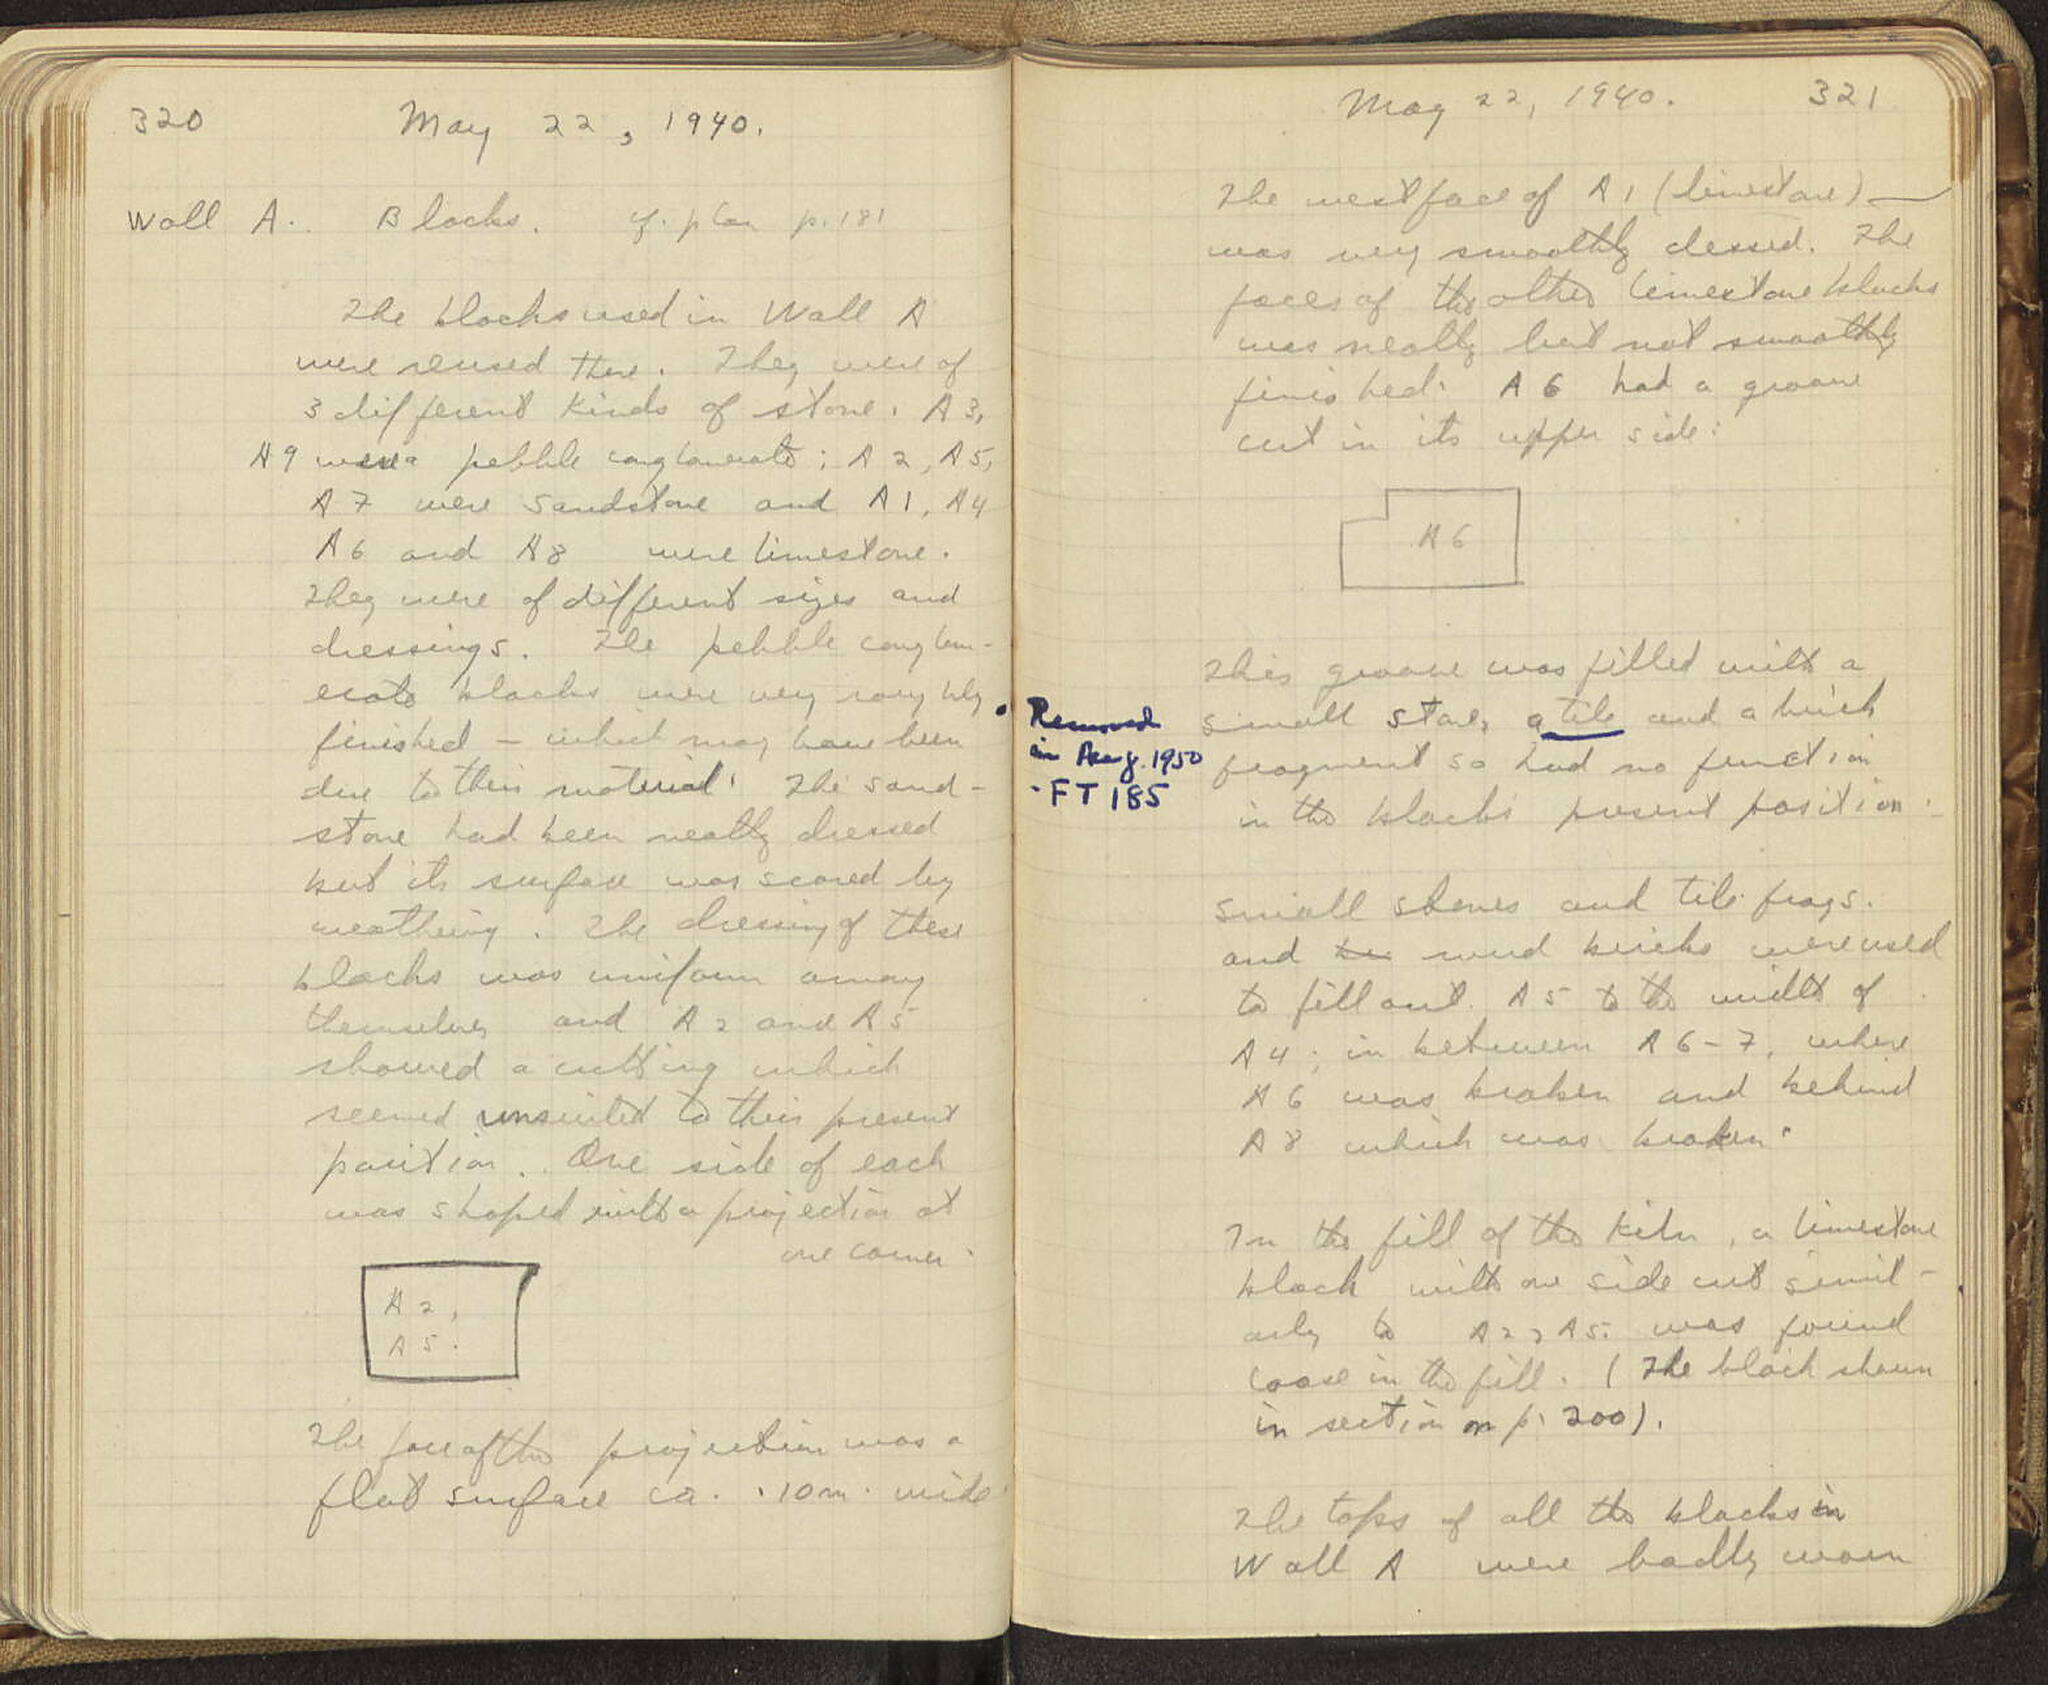 320 May 22, 1940.
Wall A. Blocks. cf. plan p. 181
The blocks used in Wall A
were reused there. They were of
3 different kinds of stone. A3,
A9 were pebble conglomerate; A2, A5,
A7 were sandstone and A1, A4
A6 and A8 were limestone.
They were of different sizes and
dressings. The pebble conglom-
erate blocks were very roughly
finished - which may have been
due to their material. The sand-
stone had been neatly dressed
but its surface was scored by
weathering. The dressing of these
blocks was uniform among
themselves and A2 and A5
showed a cutting which
seemed unsuited to their present
position. One side of each
was shaped with a projection at
one corner.
A2,
A5.
The face of the projection was a
flat surface ca. .10m. wide.
May 22, 1940. 321
The west face of A1 (limestone) —
was very smoothly dressed. The
faces of the other limestone blocks
was neatly but not smoothly
finished. A6 had a groove
cut in its upper side:
A6
This groove was filled with a
small stone, a tile and a brick
fragment so had no function
in the blocks present position.
Removed
in Aug. 1950
- FT 185
Small stones and tile frags.
and mud bricks were used
to fill out A5 to the width of
A4; in between A6-7, where
A6 was broken and behind
A8 which was broken.
In the fill of the kiln, a limestone
block with one side cut simil-
arly to A2, A5. was found
loose in the fill. (The block shown
in section on p. 200).
The tops of all the blocks in
Wall A were badly worn